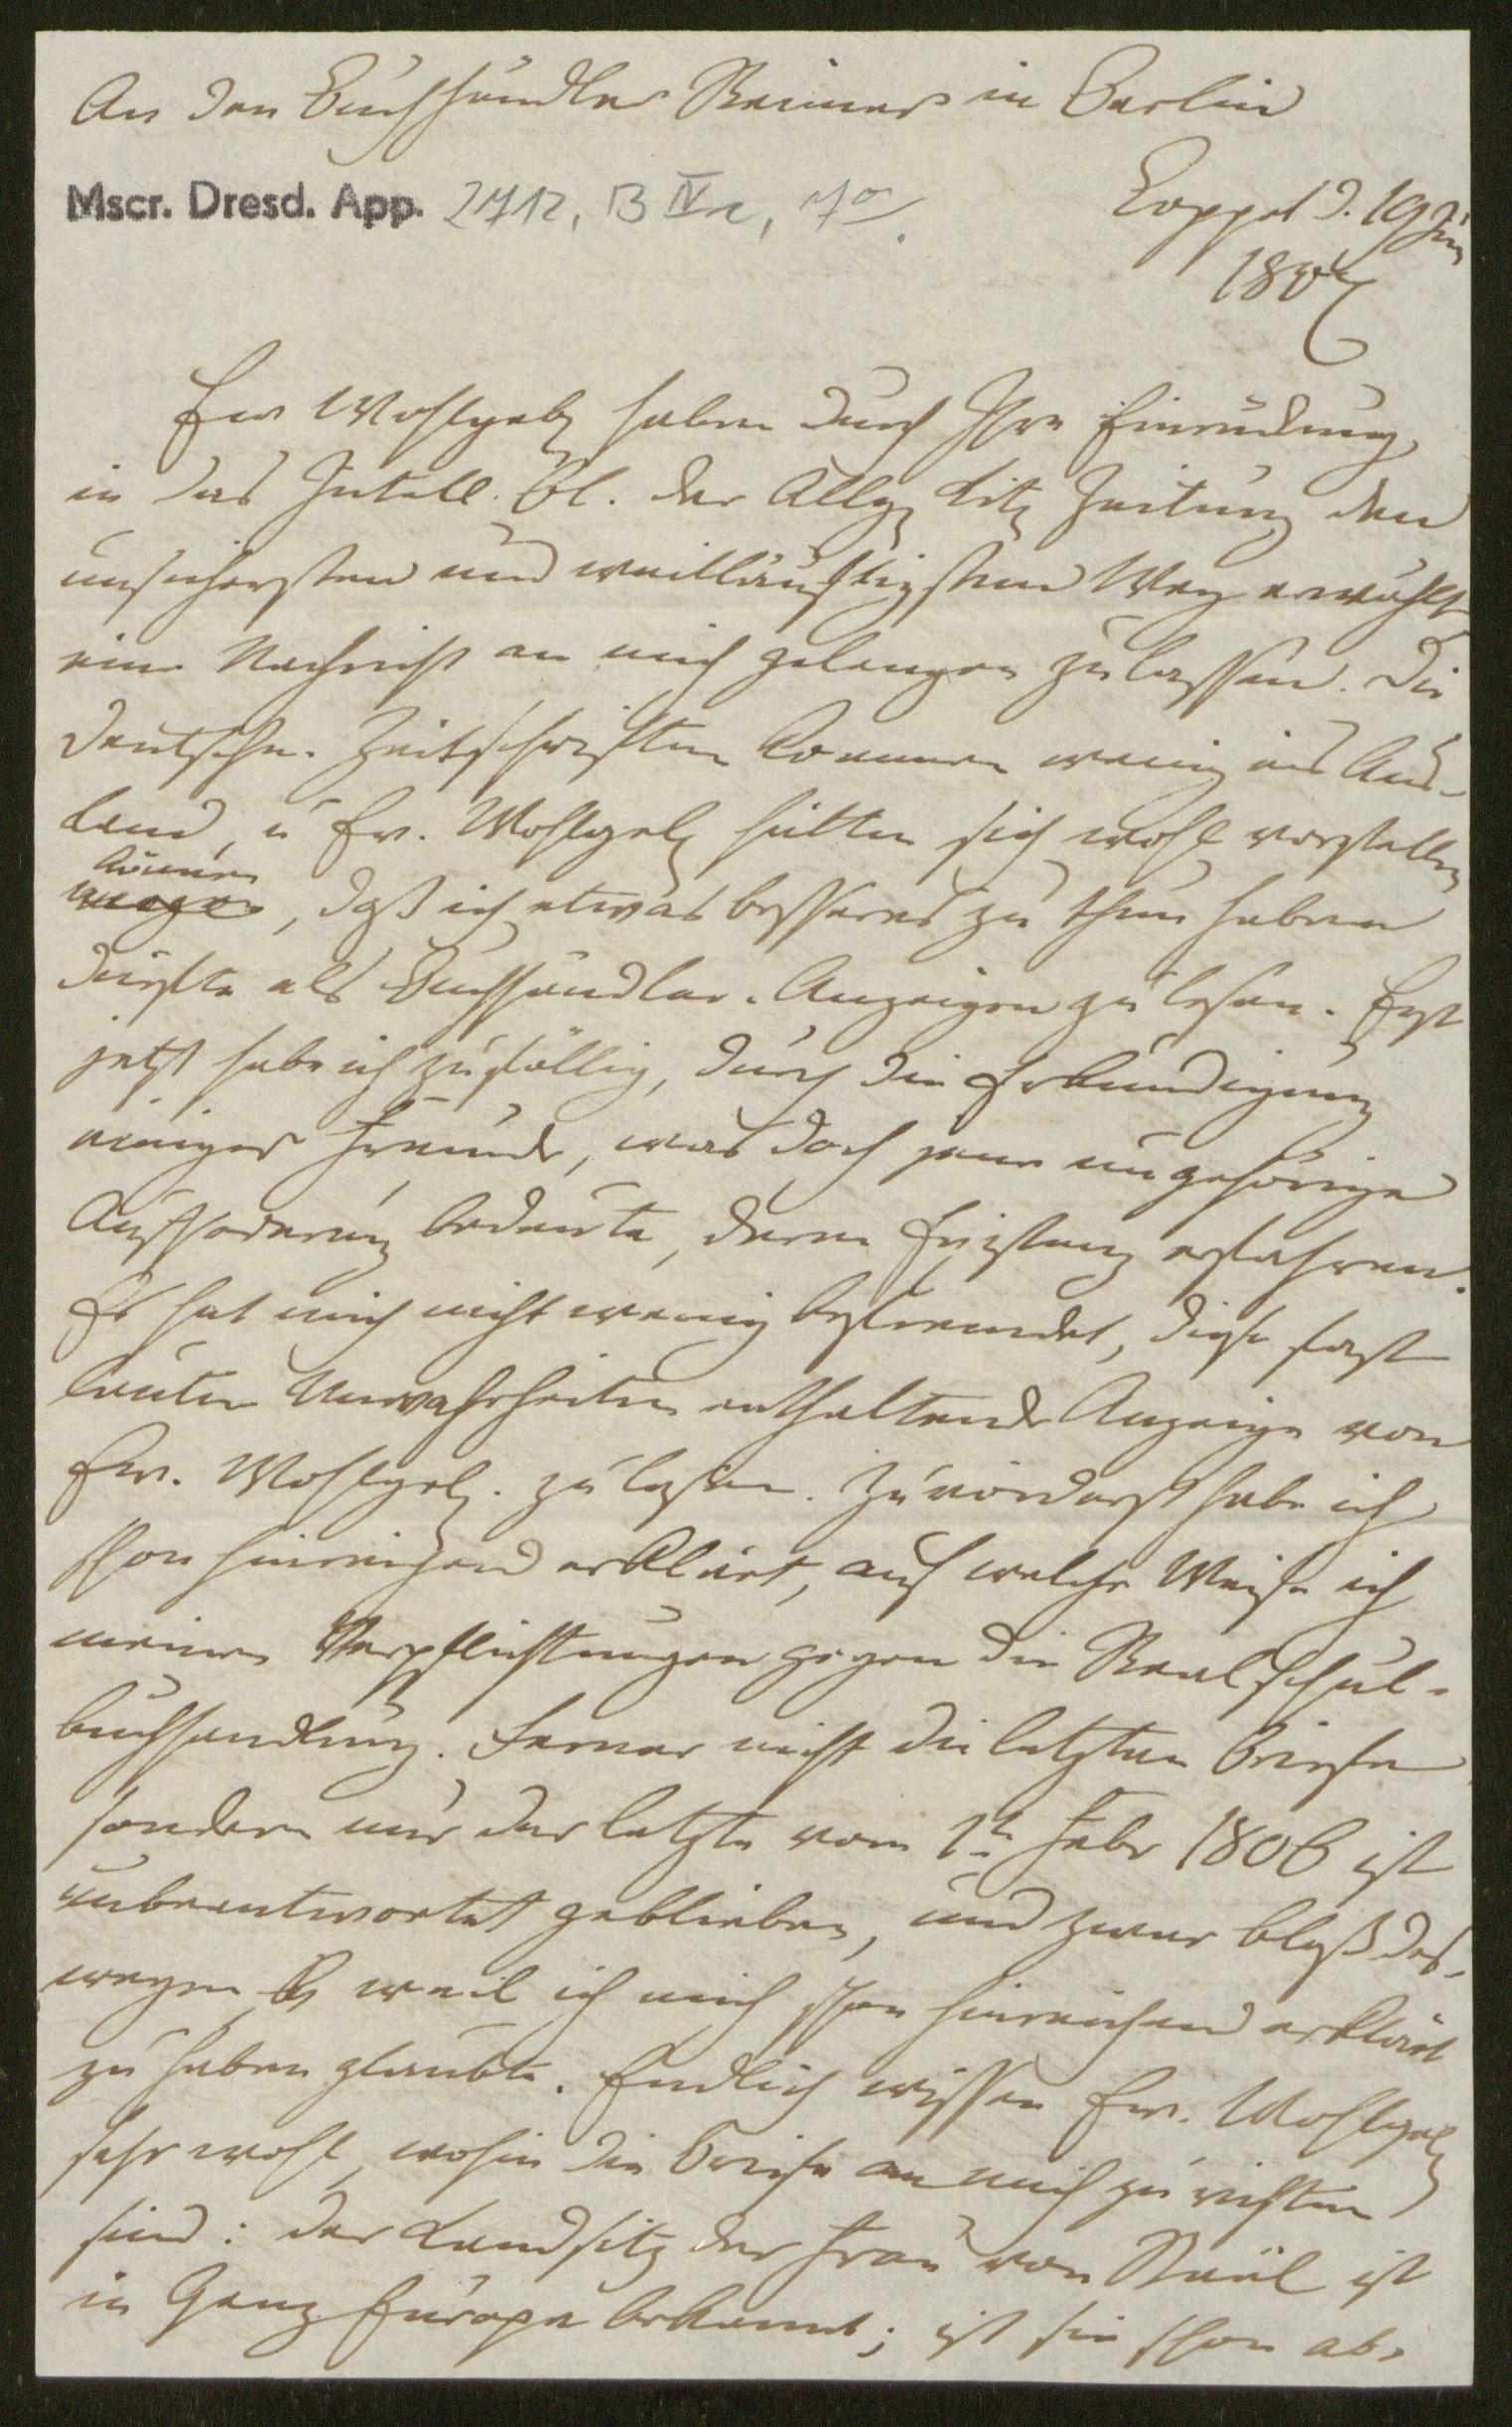 An den Buchhändler Reimer in Berlin
Mscr. Dresd. App. 2712, B IV c, 7
Coppet d. 19 Jun
1807
Ew Wohlgeb haben durch Ihre Einrückung
in das Intell. Bl. der Allg Litz Zeitung den
unsichersten und weitläuftigsten Weg erwählt
eine Nachricht an mich gelangen zu lassen. Die
deutschen Zeitschriften kommen wenig ins Aus-
land, u Ew. Wohlgeb hätten sich wohl vorstellen
können
mögen, daß ich etwas besseres zu thun haben
dürfte als Buchhändler-Anzeigen zu lesen. Erst
jetzt habe ich zufällig, durch die Erkundigung
einiger Freunde, was doch jene ungehörige
Aufforderung bedeute, deren Existenz erfahren.
Es hat mich nicht wenig befremdet, diese fast
lauter Unwahrheiten enthaltende Anzeige von
Ew. Wohlgeb. zu lesen. Zuvörderst habe ich
schon hinreichend erklärt, auf welche Weise ich
meine Verpflichtungen gegen die Realschul-
buchhandlung. Ferner nicht die letzten Briefe
sondern nur der letzte vom 1t Febr 1806 ist
unbeantwortet geblieben, und zwar bloß des-
wegen weil ich mich schon hinreichend erklärt
zu haben glaubte. Endlich wissen Ew. Wohlgeb
sehr wohl, wohin die Briefe an mich zu richten
sind: der Landsitz der Frau von Staël ist
in Ganz Europa bekannt; ist sie schon ab-